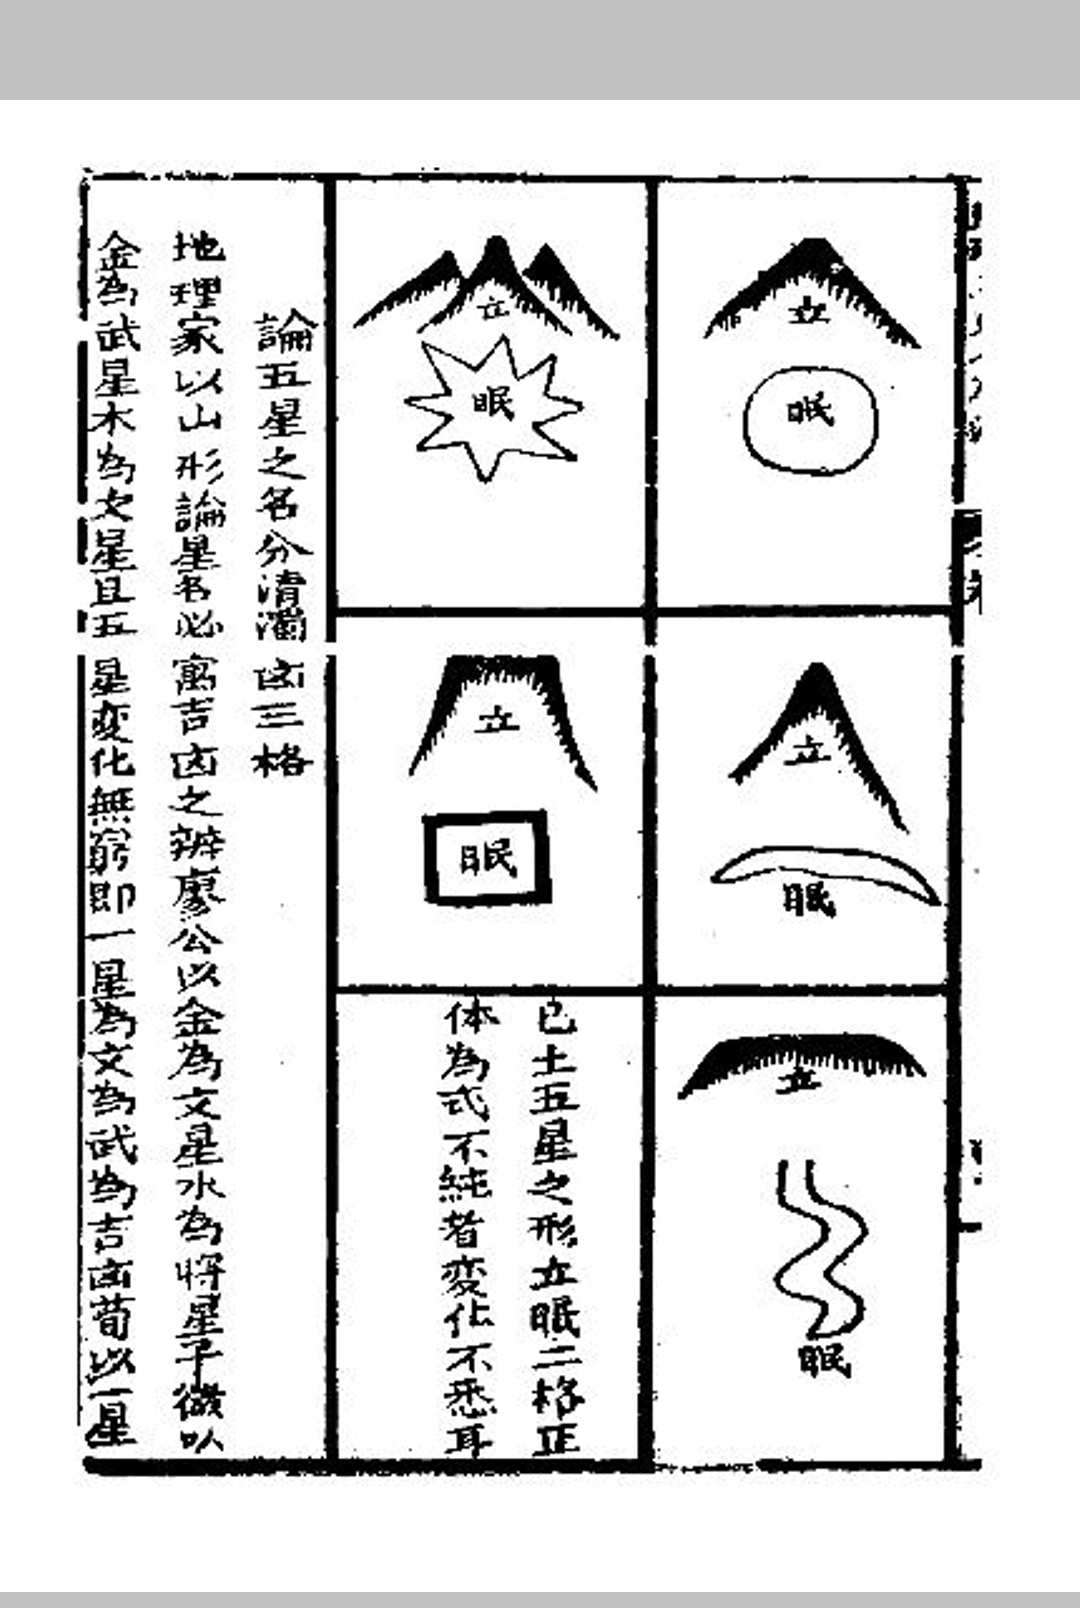 立
眠
立
眠
立
眠
立
眠
立
眠
已土五星之形立眠二格正
体為式不純者変化不悉耳
論五星之名分清濁凶三格
地理家以山形論星名必寓吉凶之辨廖公以金為文星水為將星子微以
金為武星木為文星且五星変化無窮即一星為文為武為吉凶苟以一星